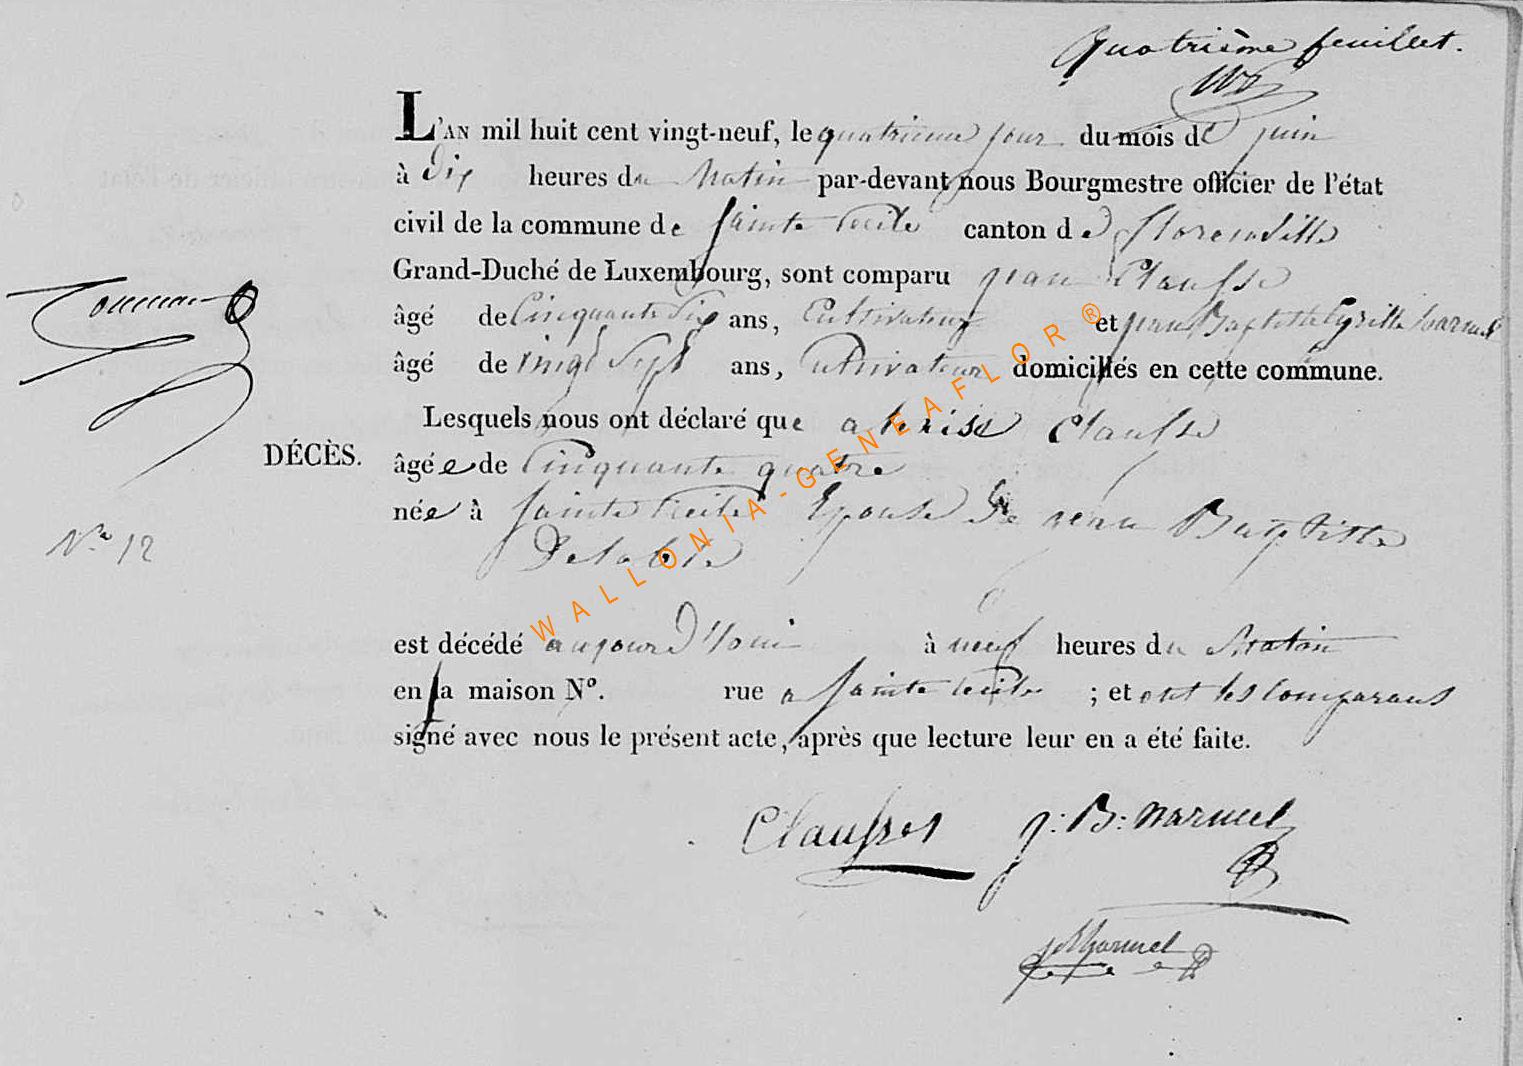 Quatrième feuillet.
L'AN mil huit cent vingt-neuf, le quatrieme jour du mois de juin
à dix heures du Matin par-devant nous Bourgmestre officier de l'état
civil de la commune de Sainte Cecile canton de Florenville
Grand-Duché de Luxembourg, sont comparu jean Clausse
âgé de Cinquante Six ans, Cultivateur et jean Baptiste
âgé de vingt Sept ans, Cultivateur domiciliés en cette commune.
Lesquels nous ont déclaré que Clausse
DÉCÈS.
âgée de Cinquante quatre
née à Sainte Cecile Epouse de jean Baptiste
N° 12
est décédé aujourd'hui à neuf heures du Matin
en la maison N°. rue a Sainte Cecile ; et ont les Comparans
signé avec nous le présent acte, après que lecture leur en a été faite.
Clausse j: B: harmel
harmel
WALLONIA-GENEAFLOR®